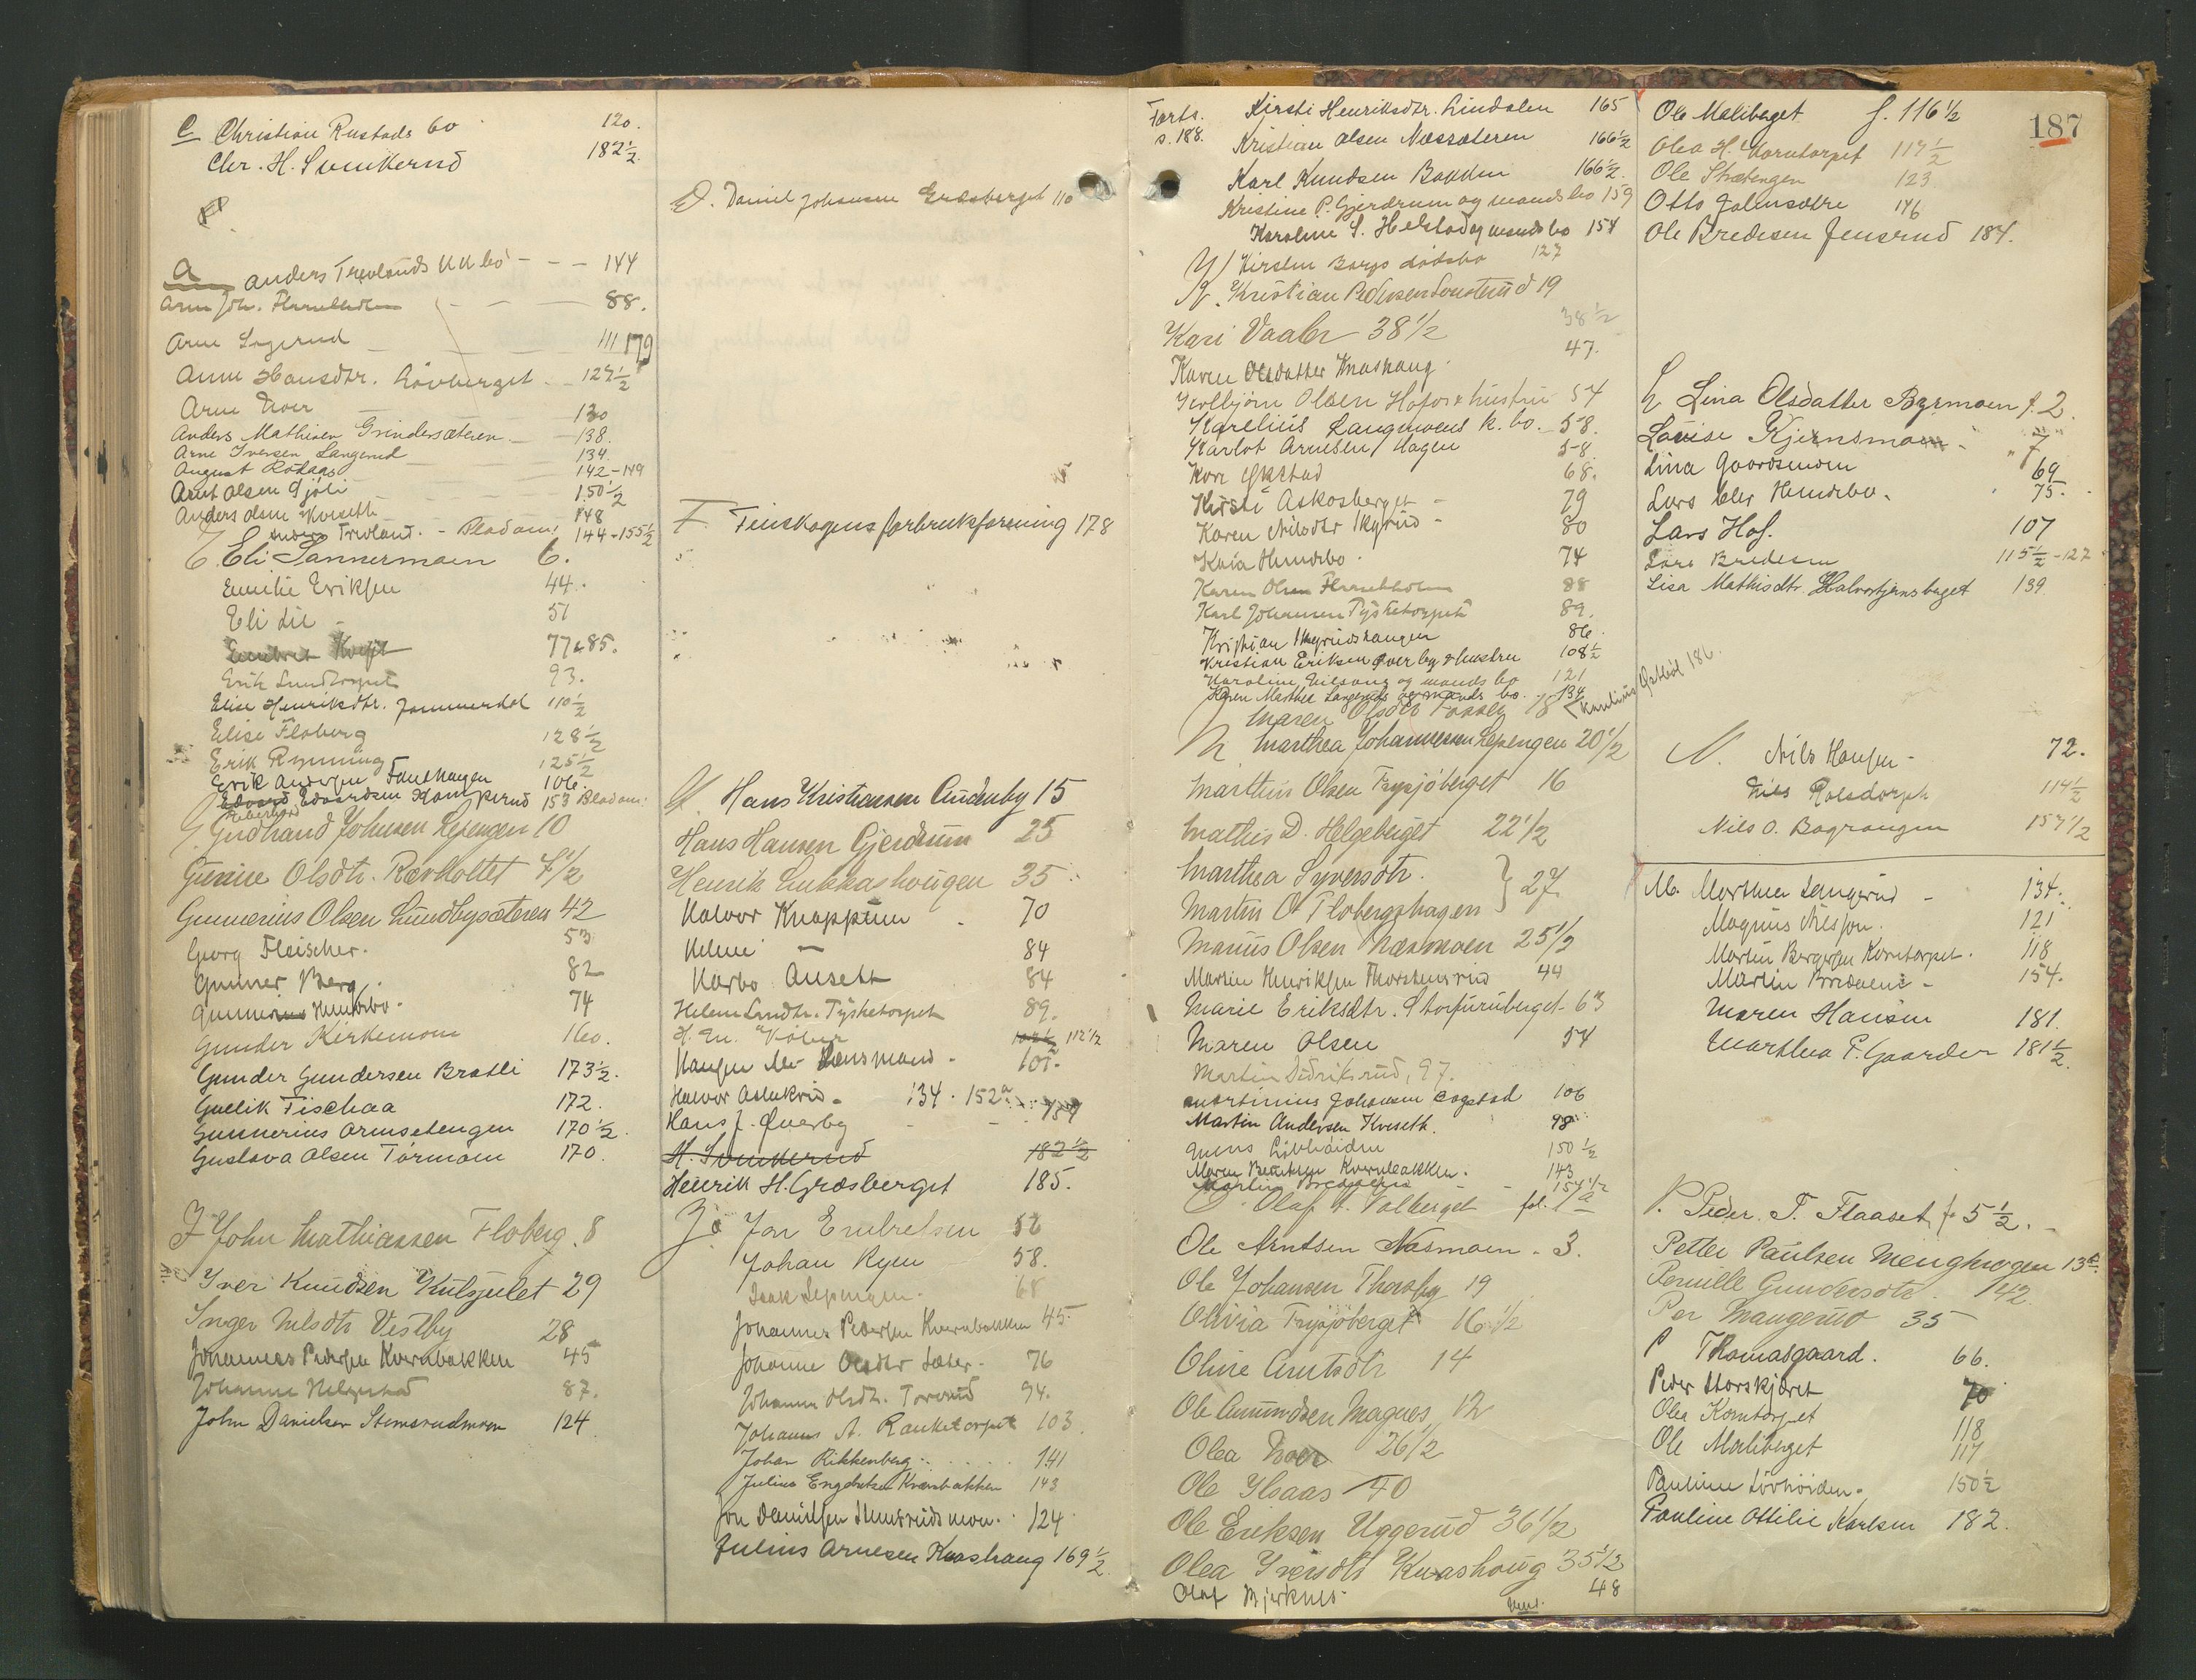 C Christian Rustads bo 120.
Chr. H. Svenkerud 182½
A Anders Trevlands KK bo - - - 144
Arne Joh. - - 88.
Arne 111 179
Anne Hansdtr. Lövberget - 127½
Arne Noer 130
Anders Mathisen Grindersæteren - 138.
Arne Iversen Langerud 134.
August Rotaas 142-149
Arnt Olsen Gjöli 150½
Anders Olsen Kveseth 148
Anders Trevland. - 144-155½
E. Eli Sannermoen 6.
Emilie Eriksen 44.
Eli Lie - 51
77 & 85.
Erik Lundtorpet 93.
Elise Henriksdtr. Jammerdal 110½
Elise Floberg 128½
Erik Rynning 125½
Erik Andersen 106.
Edvard Edvardsen 153
G. Gudbrand Johnsen Lepengen 10
Gunine Olsdtr. Rævholtet 4½
Gunnerius Olsen Lundbysæteren 42
Georg Fleischer. 53
Gunner Berg. 82
Gunnerius 74
Gunder Kirkemoen 160.
Gunder Gundersen Bratli 173½.
Gullik Tischaa 172.
Gunnerius Arnsetengen 170½.
Gustava Olsen Törmoen 170.
J John Mathiassen Floberg. 8
Iver Knudsen Kulsjulet 29
Inger Nilsdtr Vestby 28
Johannes Pedersen Kvernbakken 45
Johanne Helgestad 87.
John Danielsen Stemsrudmoen 124
D. Daniel Johansen Græsberget 110
F. Finskogens forbruksforening 178
H. Hans Kristiansen Audenby 15
Hans Hansen Gjerdrum 25
Henrik Lukkashougen 35
Halvor Knappum - 70
Helene - 84
Karbo Anseth 84
Helene Tysketorpet 89.
H. M. 112½
Hansen Lensmand - 107.
Halvor - 134. 152
Hans J. Överby - -
H. Svenkerud 182½
Henrik H. Græsberget 185.
Jo Jon Embretsen 52
Johan Ryen 58.
Isak Lepengen. 68
Johannes Pedersen Kvernbakken 45.
Johanne Olsdtr Sæter. 76
Johanne Olsdtr. Torrud 94.
Johannes A. Ranketorpet 103
Johan Rikkenberg . . . . . 141
Julius Engebretsen Kvernbakken 143
Jon Danielsen Stemsrudsmoen. 124
Julius Arnesen Knashaug 169½
Forts. s. 188.
Kirsti Henriksdtr. Lindalen 165
Kristian Olsen Næssæteren 166½
Karl Knudsen Bakken 166½.
Kristine P. Gjerdrum og mands bo 159
Karoline S. Helstad og mands bo 154
Kirsten Bergs dödsbo 127
K. Kristian Pedersen 19
Kari Vaaler 38½ 38½
Karen Olsdatter Knashaug. 47.
Kolbjörn Olsen Hof & hustru 54
Karelius Langmoens k. bo. 58.
Karlot Arnesen Hagen 58
Kari Ekstad 68.
Kirsti Askosberget - 79
Karen Nilsdtr Skyrud - 80
Kaia . 74
Karen Olsen 88
Karl Johansen Tysketorpet 89.
Kristian Skyrudshaugen 86.
Kristian Eriksen Överby & hustru 108½
Karoline Nilsen og mands bo 121
Karen Marthea Langeruds og mands bo. 134
Karelius Östböl 186.
Maren Olsdtr 18
M. Marthea Johannessen Lepengen 20½
Marthin Olsen Frysjöberget 16
Mathis D. Helgeberget 22½
Marthea Syversdtr. } 27
Martin O. Flobergshagen
Marius Olsen Næsmoen 25½
Martin Henriksen 44
Marie Eriksdtr. Storfuruberget 63
Maren Olsen 54
Martin Didriksrud, 97.
Martinius Johansen Bogstad 106
Martin Andersen Kveseth. 98
Lövhöiden 150½
Maren Kvernbakken. 143
Martin Bredesen - - 154½
O. Olaf A. Valberget fol. 1a
Ole Arntsen Næsmoen - 3.
Ole Johansen Thorsby 19
Olivia Frysjöberget 16½
Oline Arntsdtr 14
Ole Amundsen Magnes 12
Olea Noer 26½
Ole Haas 40
Ole Eriksen Uggerud 36½
Olea Iversdtr Knashoug 35½
Olaf Bjerknes. 48
Vend.
187
Ole Maliberget f. 116½
Olea H. Korntorpet 117½
Ole Strætengen 123
Otto Galmsætre 146
Ole Bredesen Jensrud 184.
L Lina Olsdatter Byrmoen f. 2.
Louise Kjernsmoen - " 7
Lina Gaardsmoen 69
Lars 75.
Lars Hof. 107
Lars Bredesen 115½-127
Lisa Mathisdtr. Halvortjernsberget 139
N. Nils Hansen - 72.
Nils Rolsdorph 114½
Nils O. Bograngen 157½
M. Marthea Langerud - 134.
Magnus Nilsson. 121
Martin Bergersen Korntorpet. 118
Martin Bredesen - 154.
Maren Hansen 181.
Marthea P. Gaarder 181½
P. Peder T. Flaaset f. 5½.
Petter Paulsen Mengkrogen 13
Pernille Gundersdtr. 142
Per Mangerud 35
P Thomasgaard. 66.
Peder Storskjæret 70
Olea Korntorpet 118
Ole Maliberget 117
Pauline Lövhöiden. 150½
Pauline Ottilie Karlsen 182.